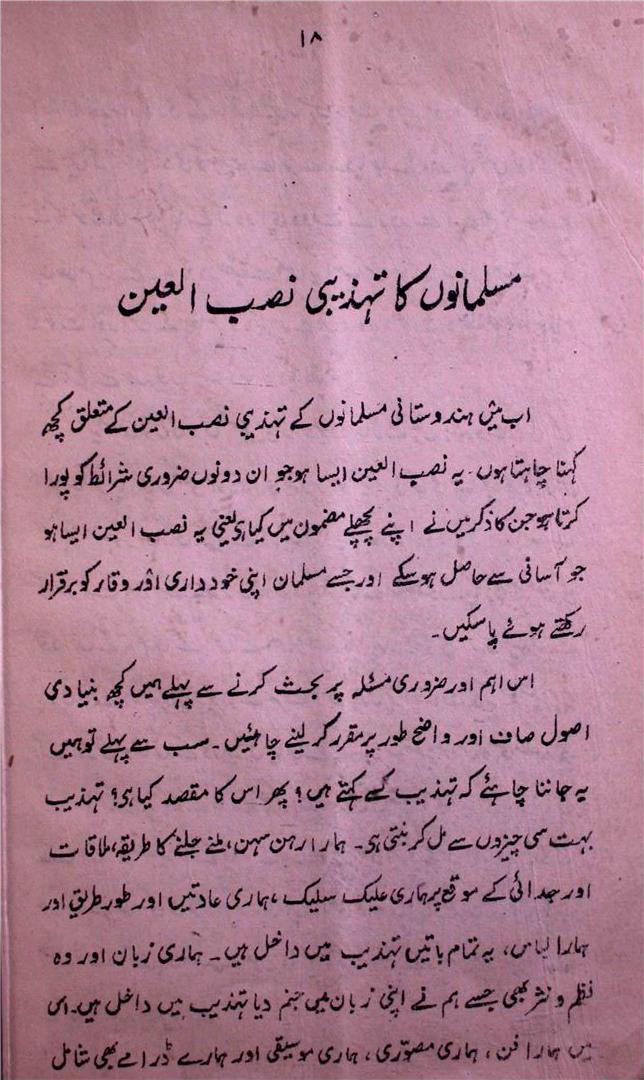 ۱۸
مسلمانوں کا تہذیبی نصب العین
اب میں ہندوستانی مسلمانوں کے تہذیبی نصب العین کے متعلق کچھ
کہنا چاہتا ہوں۔ یہ نصب العین ایسا ہو جو ان دونوں ضروری شرائط کو پورا
کرتا ہو جن کا ذکر میں نے اپنے پچھلے مضمون میں کیا ہی یعنی یہ نصب العین ایسا ہو
جو آسانی سے حاصل ہو سکے اور جسے مسلمان اپنی خود داری اور وقار کو برقرار
رکھتے ہوئے پا سکیں۔
اس اہم اور ضروری مسئلہ پر بحث کرنے سے پہلے ہمیں کچھ بنیادی
اصول صاف اور واضح طور پر مقرر کر لینے چاہئیں۔ سب سے پہلے تو ہمیں
یہ جاننا چاہئے کہ تہذیب کسے کہتے ہیں؟ پھر اس کا مقصد کیا ہی؟ تہذیب
بہت سی چیزوں سے مل کر بنتی ہی۔ ہمارا رہن سہن، ملنے جلنے کا طریقہ، ملاقات
اور جدائی کے موقع پر ہماری علیک سلیک، ہماری عادتیں اور طور طریق اور
ہمارا لباس، یہ تمام باتیں تہذیب میں داخل ہیں۔ ہماری زبان اور وہ
نظم و نثر بھی جسے ہم نے اپنی زبان میں جنم دیا تہذیب میں داخل ہیں۔ اس
میں ہمارا فن، ہماری مصوّری، ہماری موسیقی اور ہمارے ڈرامے بھی شامل